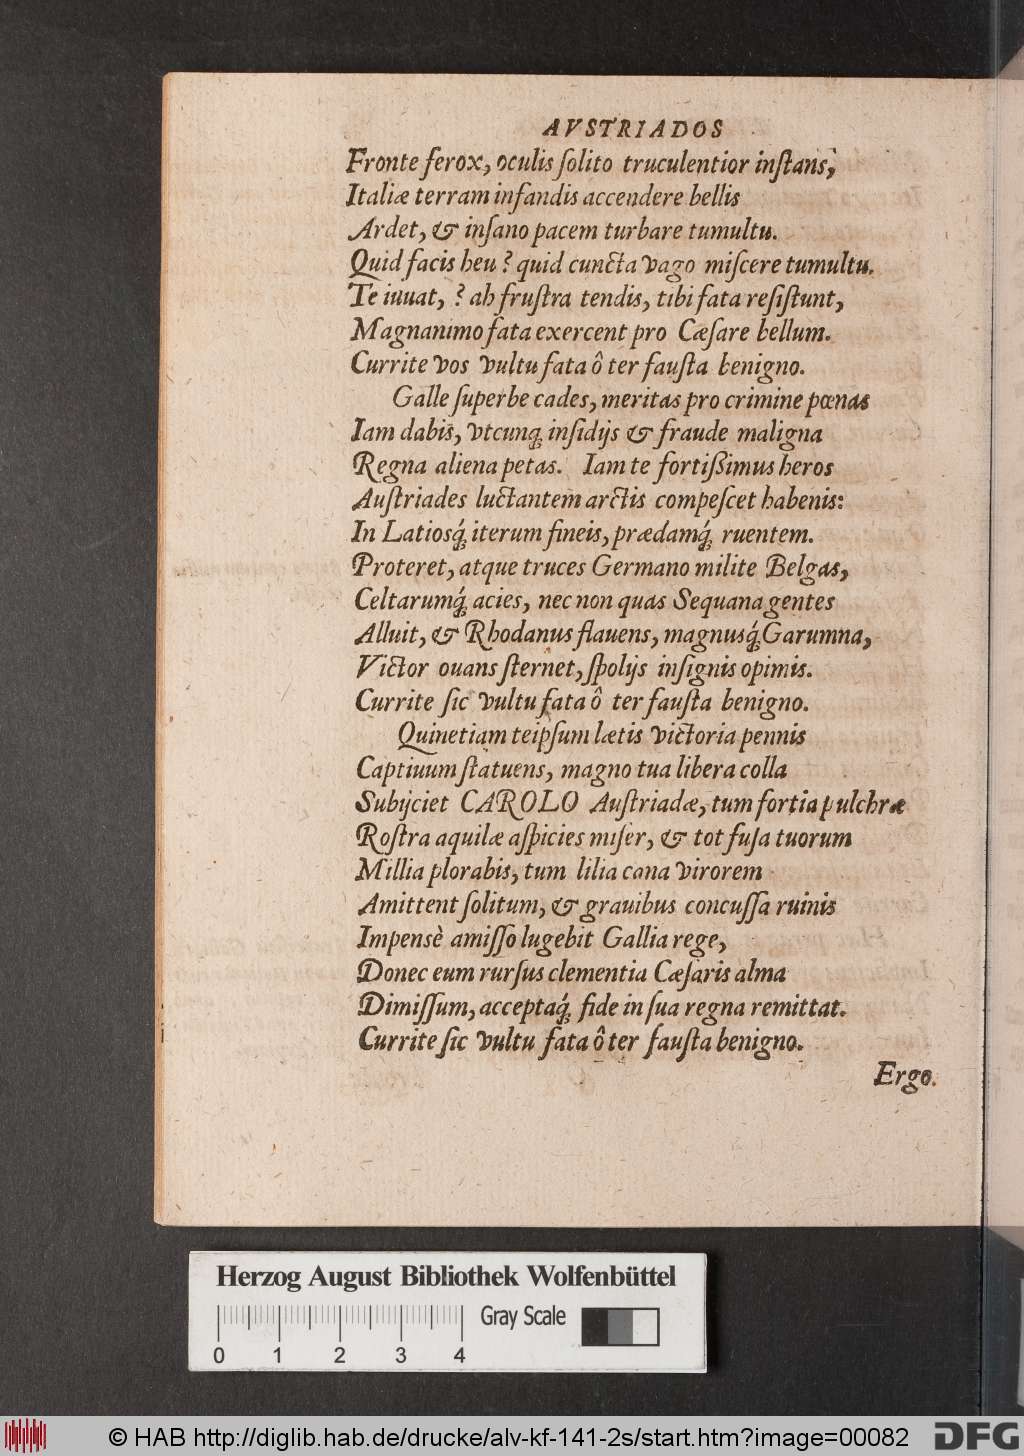 AVSTRIADOS
Fronte ferox, oculis ſolito truculentior inſtans,
Italiæ terram infandis accendere bellis
Ardet, & inſano pacem turbare tumultu.
Quid facis heu ? quid cuncta vago miſcere tumultu.
Te iuuat, ? ah fruſtra tendis, tibi fata reſiſtunt,
Magnanimo fata exercent pro Cæſare bellum.
Currite vos vultu fata ô ter fauſta benigno.
Galle ſuperbe cades, meritas pro crimine pœnas
Iam dabis, vtcunq; inſidijs & fraude maligna
Regna aliena petas. Iam te fortißimus heros
Auſtriades luctantem arctis compeſcet habenis:
In Latiosq́; iterum fineis, prædamq́; ruentem.
Proteret, atque truces Germano milite Belgas,
Celtarumq́; acies, nec non quas Sequana gentes
Alluit, & Rhodanus flauens, magnusq́; Garumna,
Victor ouans ſternet, ſpolijs inſignis opimis.
Currite ſic vultu fata ô ter fauſta benigno.
Quinetiam teipſum lætis victoria pennis
Captiuum ſtatuens, magno tua libera colla
Subijciet CAROLO Auſtriadæ, tum fortia pulchræ
Roſtra aquilæ aſpicies miſer, & tot fuſa tuorum
Millia plorabis, tum lilia cana virorem
Amittent ſolitum, & grauibus concuſſa ruinis
Impensè amiſſo lugebit Gallia rege,
Donec eum rurſus clementia Cæſaris alma
Dimiſſum, acceptaq́; fide in ſua regna remittat.
Currite ſic vultu fata ô ter fauſta benigno.
Ergo.
Herzog August Bibliothek Wolfenbüttel
Gray Scale
0 1 2 3 4
© HAB http://diglib.hab.de/drucke/alv-kf-141-2s/start.htm?image=00082
DFG